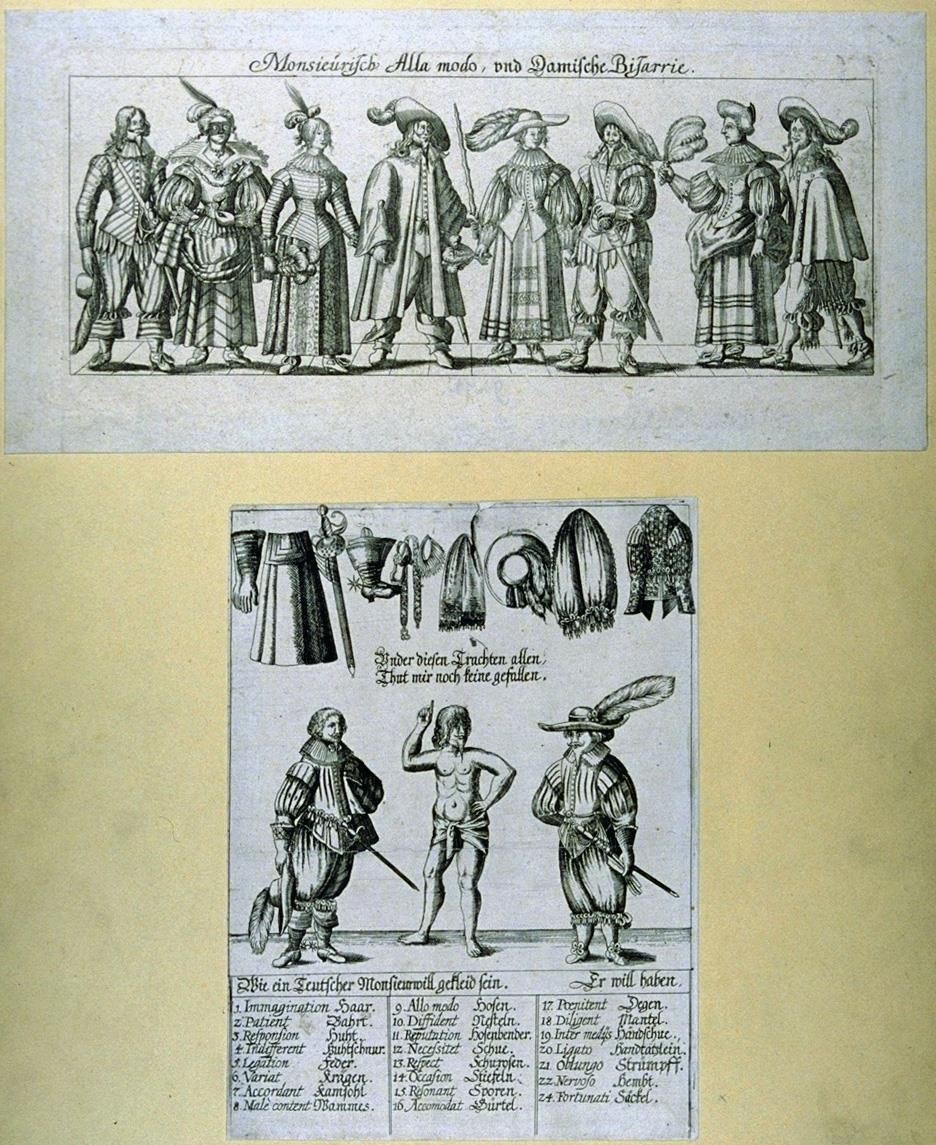 Monsieurisch Alla modo, vnd Damische Bisarrie.
Vnder diesen Trachten allen,
Thut mir noch keine gefallen.
Wie ein Teutscher Monsieur will gekleid sein. Er will haben.
1. Immagination Haar.
2. Patient Bahrt.
3. Responsion Huht.
4. Indifferent Huhtschnur.
5. Legation Feder.
6. Variat Krägen.
7. Accordant Kamisohl
8. Male content Wammes.
9. Allo modo Hosen.
10. Diffident Nesteln.
11. Reputation Hosenbender.
12. Necessitet Schue.
13. Respect Schurosen.
14. Occasion Stiefeln.
15. Resonant Sporen.
16. Accomodat Gürtel.
17. Pœnitent Degen.
18. Diligent Mantel.
19. Inter medijs Handschue.
20. Ligato Handtätslein.
21. Oblungo Strümpff.
22. Nervoso Hembt.
24. Fortunati Säckel.